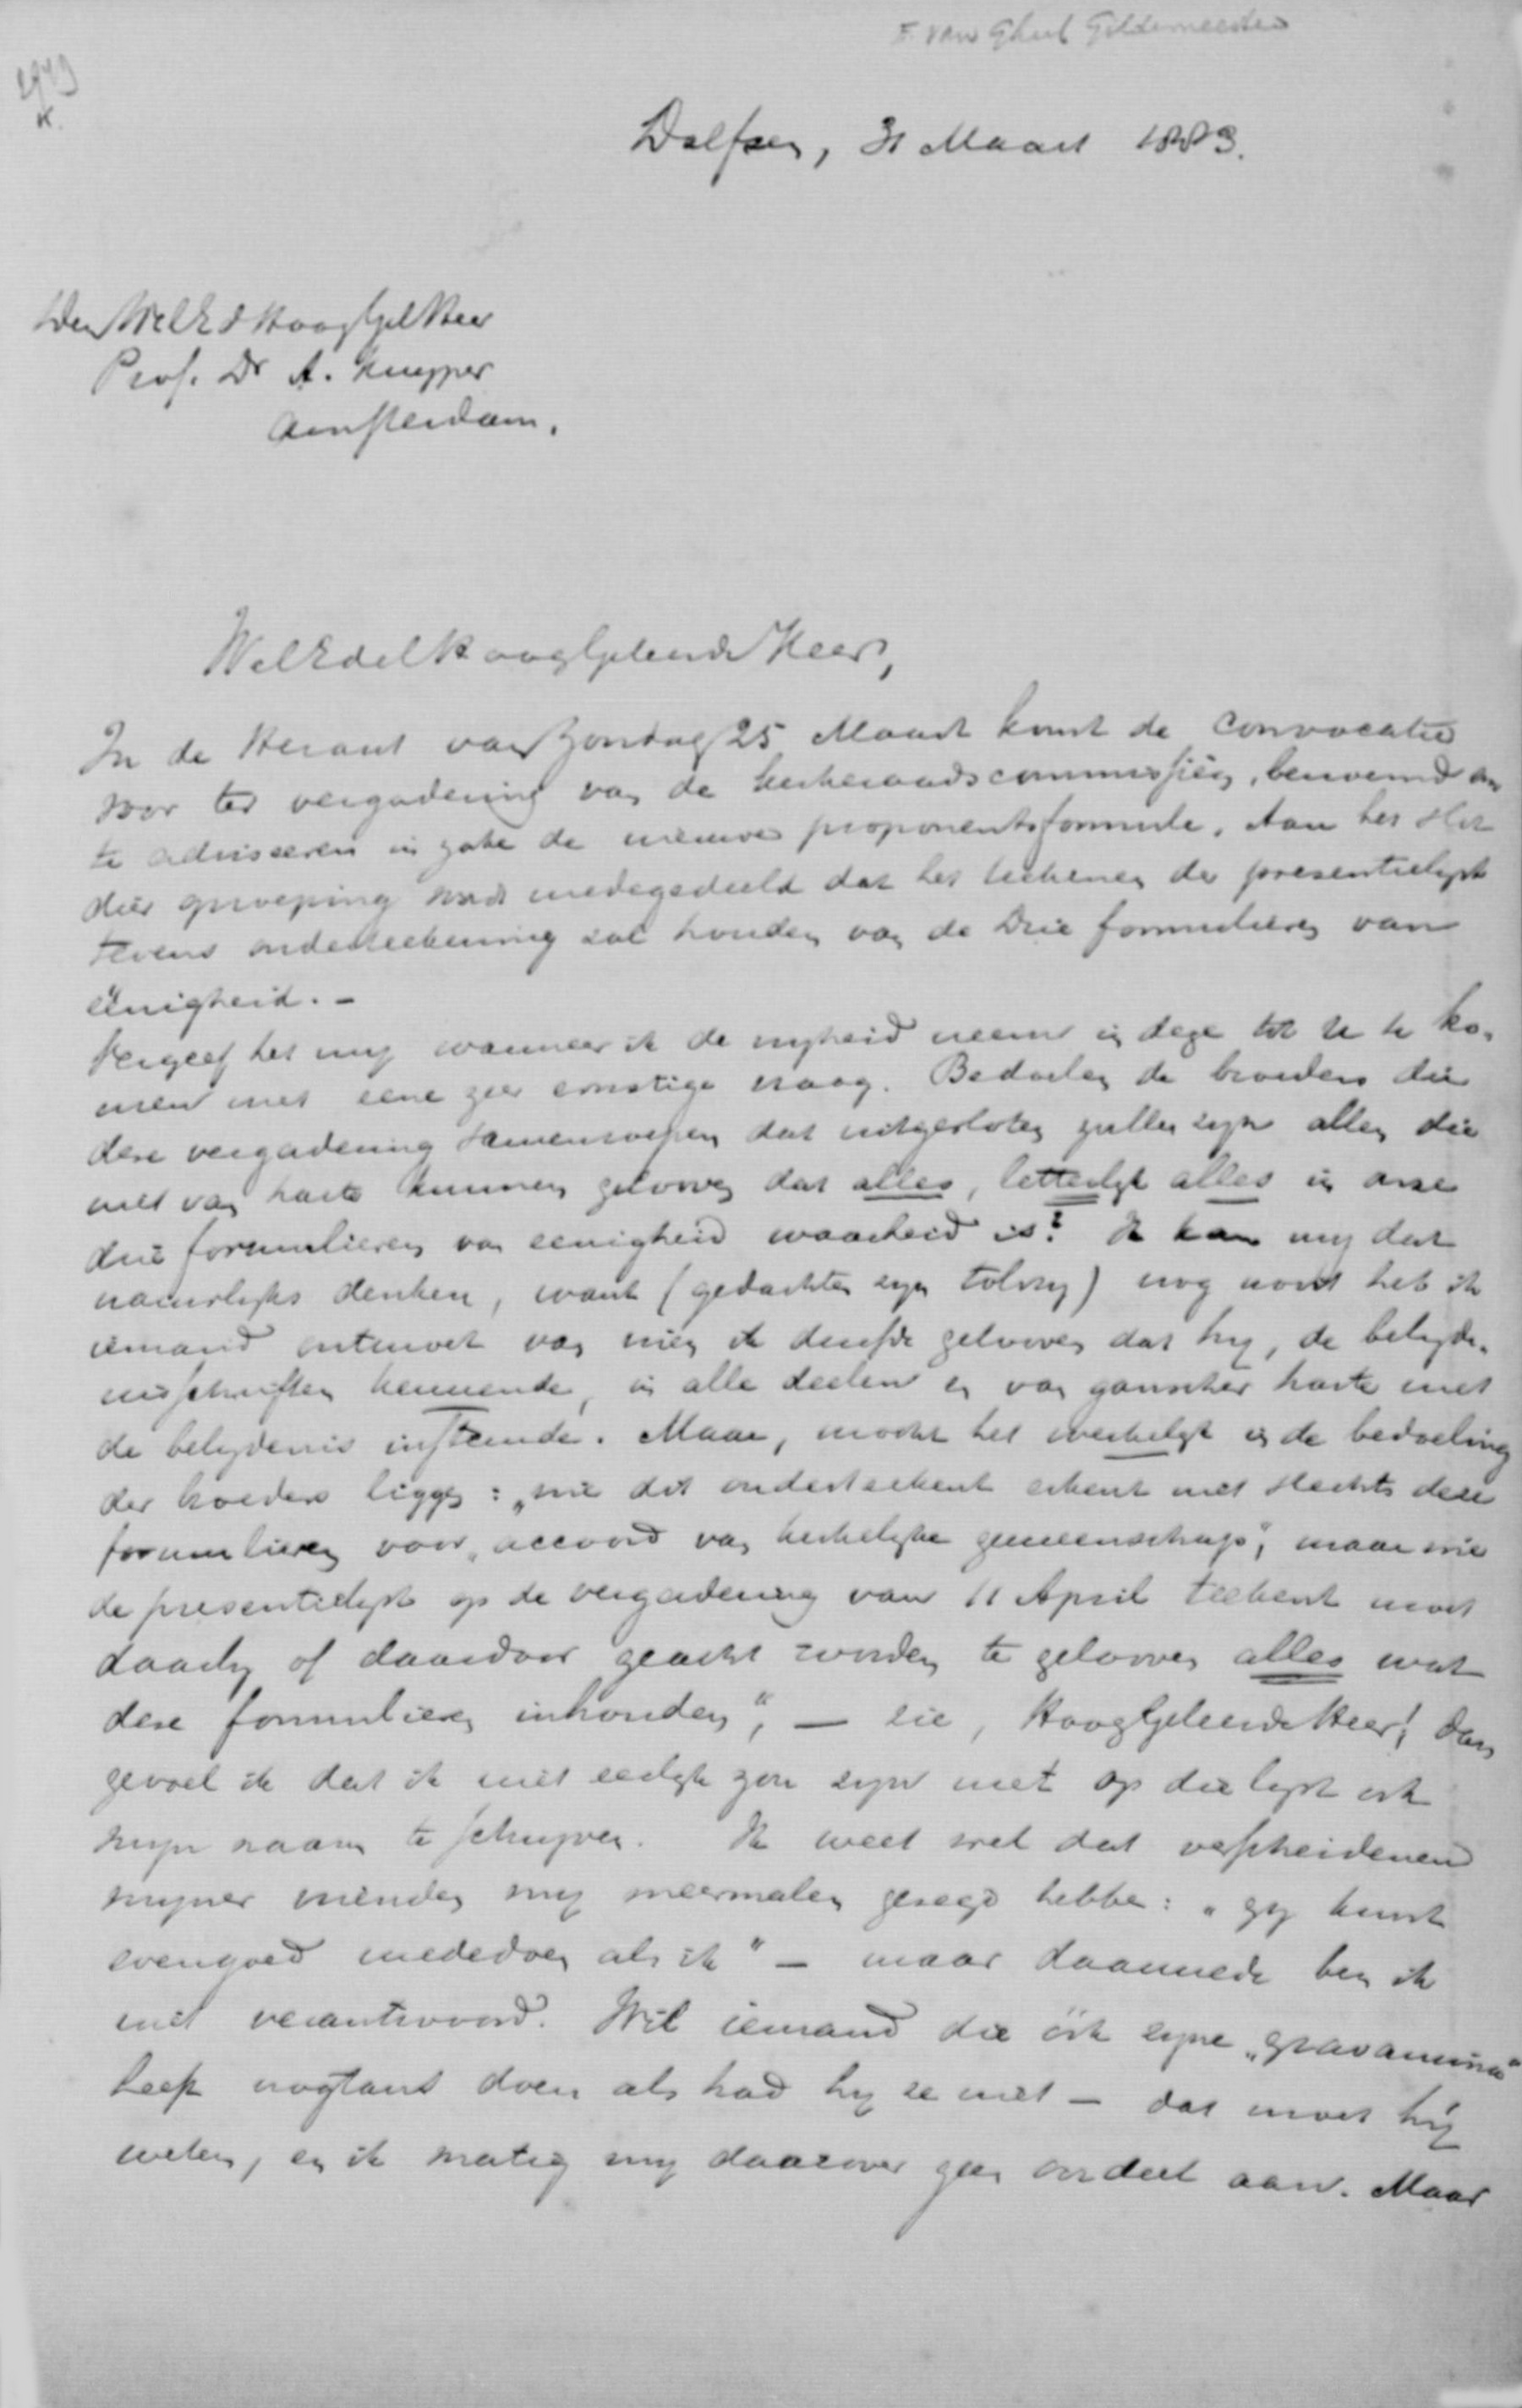 F. van Gheel Gildemeester
2949
K.
Dalfsen, 31 Maart 1883.
Den WelEd HoogGel Heer
Prof. Dr A. Kuyper
Amsterdam.
WelEdelHoogGeleerde Heer,
In de Heraut van Zondag 25 Maart komt de convocatie
voor ter vergadering van de kerkeraadscommissiën, benoemd om
te adviseeren in zake de nieuwe proponentsformule. Aan het slot
dier oproeping wordt medegedeeld dat het teekenen der presentielijst
tevens onderteekening zal houden van de Drie formulieren van
eenigheid. -
Vergeef het mij wanneer ik de vrijheid neem in deze tot U te ko-
men met eene zeer ernstige vraag. Bedoelen de broeders die
deze vergadering samenroepen dat uitgesloten zullen zijn allen die
niet van harte kunnen gelooven dat alles, letterlijk alles in onze
drie formulieren van eenigheid waarheid is? Ik kan mij dat
nauwlijks denken, want (gedachten zijn tolvrij) nog nooit heb ik
iemand ontmoet van wien ik durfde gelooven dat hij, de belijde-
nisschriften kennende, in alle deelen en van ganscher harte met
de belijdenis instemde. Maar, mocht het werkelijk in de bedoeling
der broeders liggen: „wie dit onderteekent erkent niet slechts deze
formulieren voor „accoord van kerkelijke gemeenschap", maar wie
de presentielijst op de vergadering van 11 April teekent moet
daarbij of daardoor geacht worden te gelooven alles wat
deze formulieren inhouden", — zie, HoogGeleerde Heer! dan
gevoel ik dat ik niet eerlijk zou zijn met op die lijst ook
mijn naam te schrijven. Ik weet wel dat verscheidenen
mijner vrienden mij meermalen gezegd hebben: „gij kunt
evengoed mededoen als ik" — maar daarmede ben ik
niet verantwoord. Wil iemand die óók zijne „gravamina"
heeft nogtans doen als had hij ze niet — dat moet hij
weten, en ik matig mij daarover geen oordeel aan. Maar